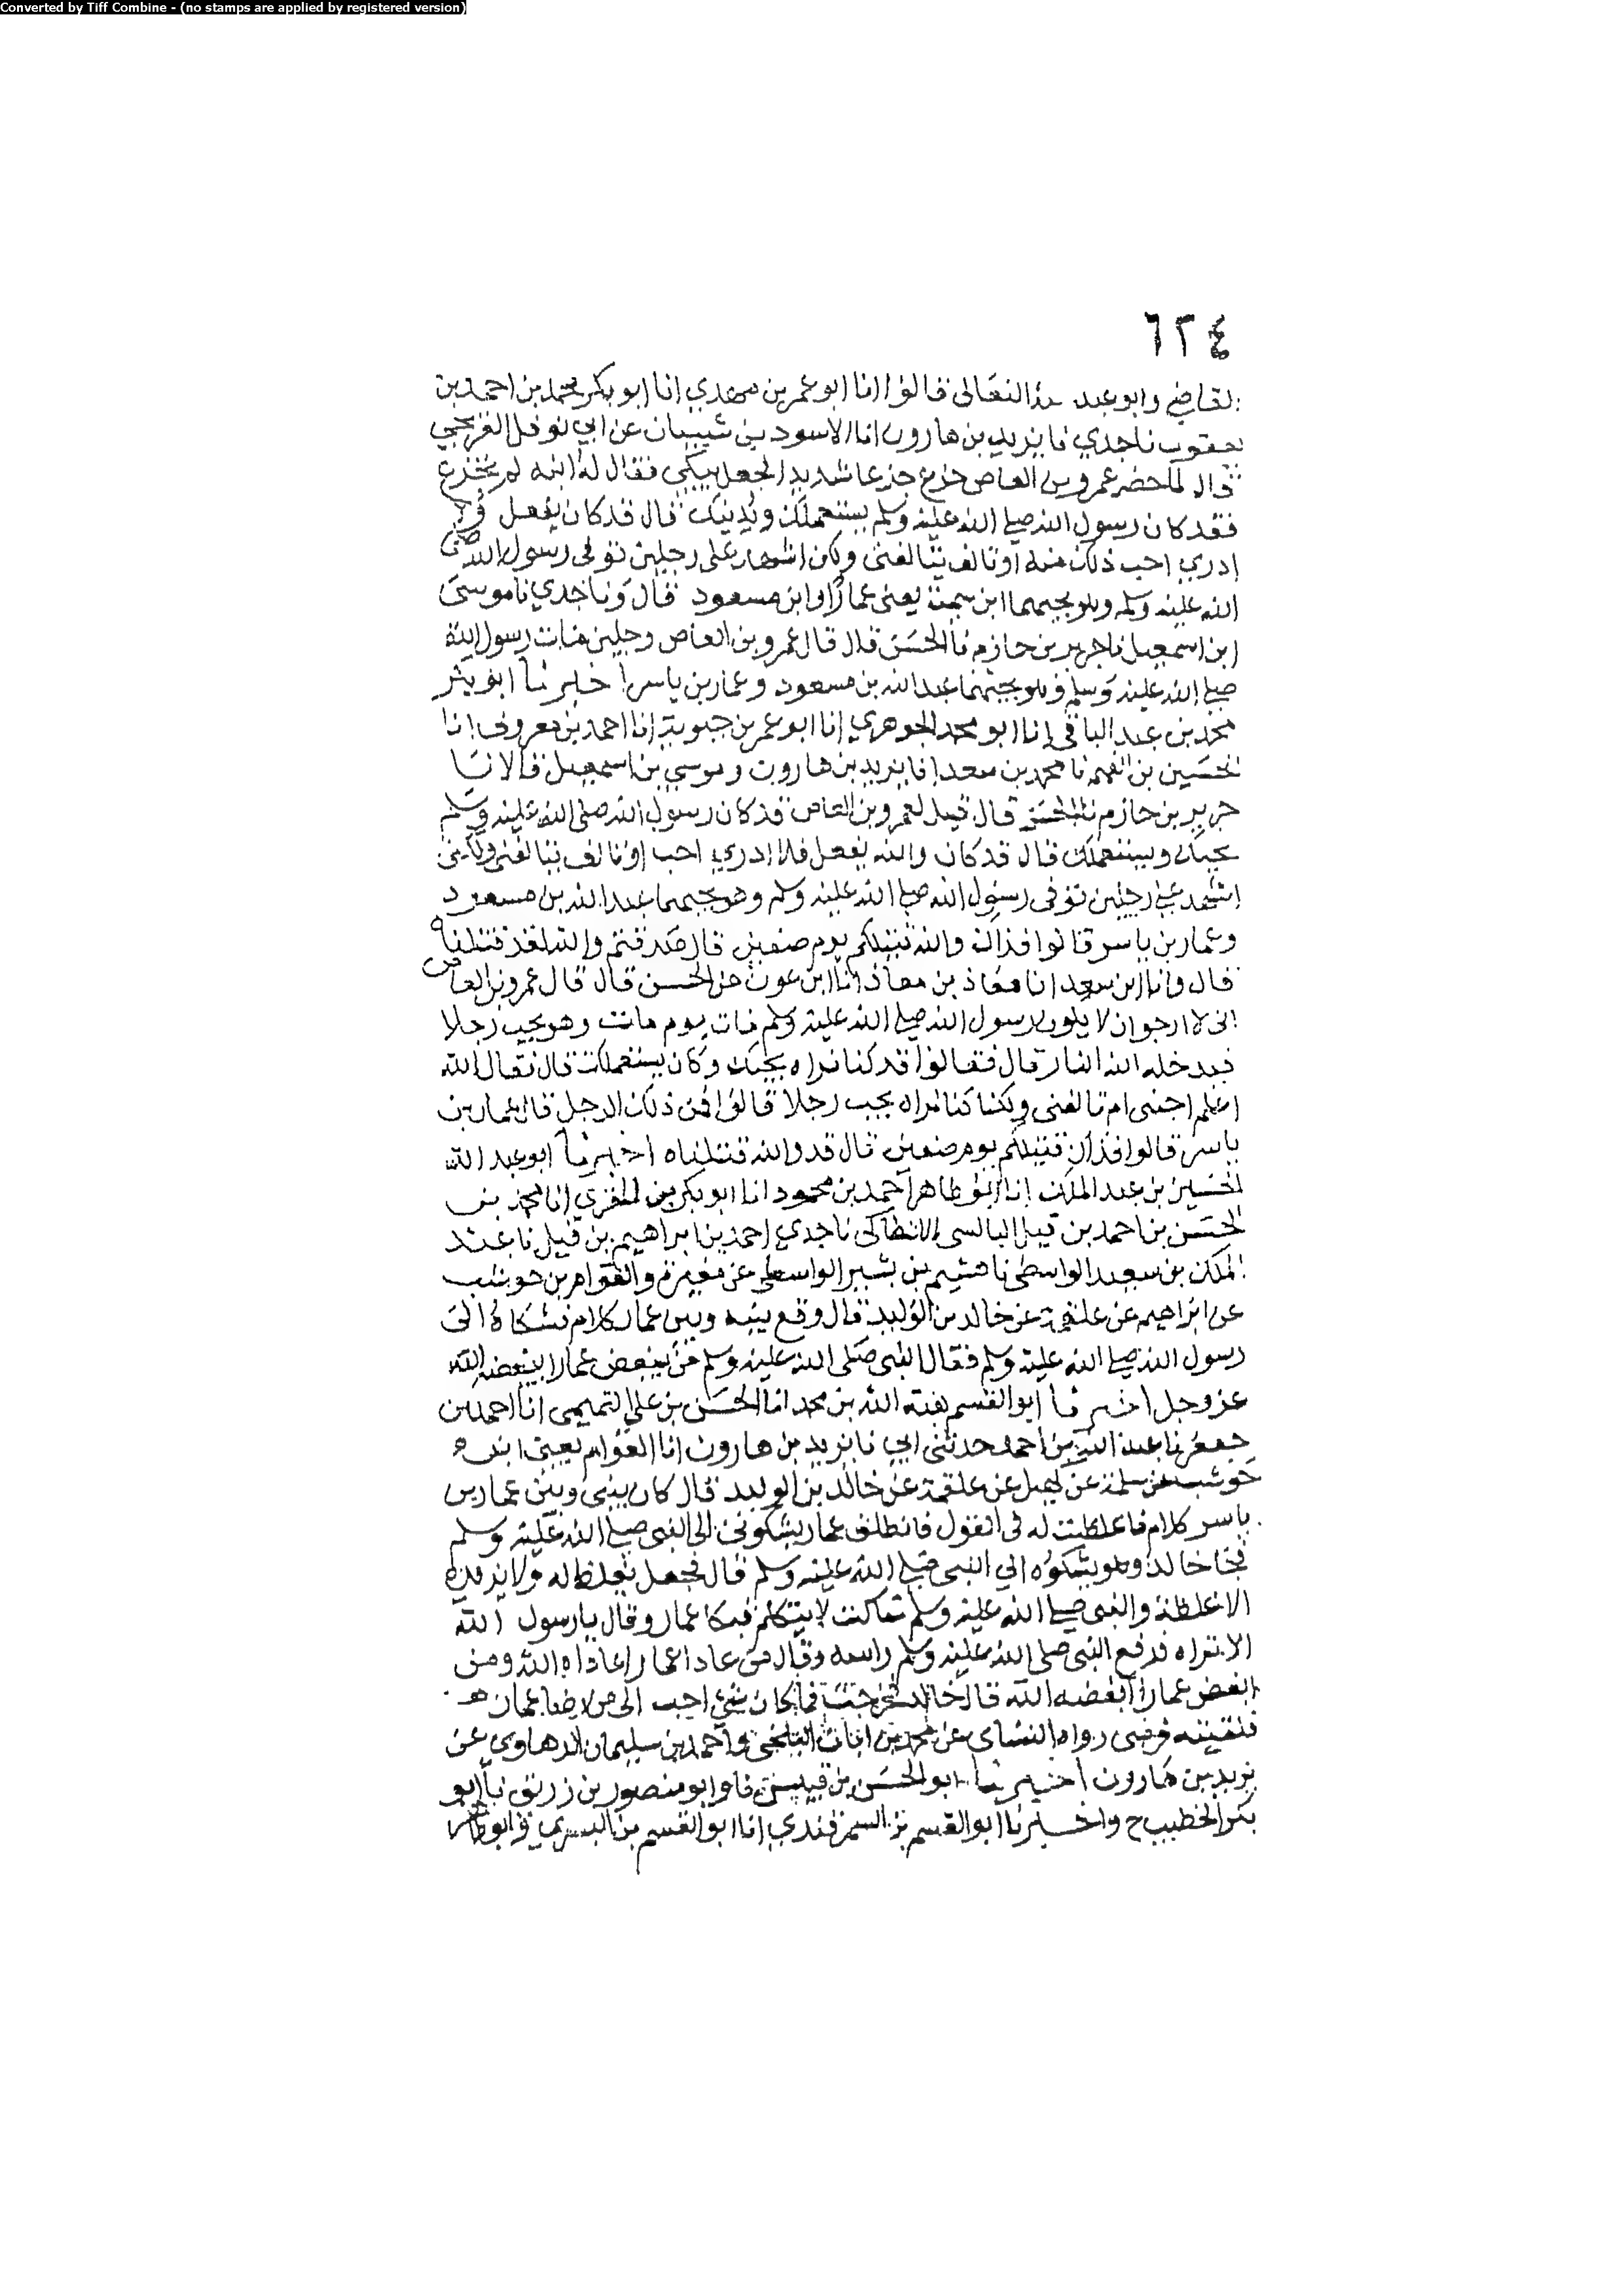 Converted by Tiff Combine - (no stamps are applied by registered version)
٦٢٤
القاضي وابو عبد الله النعالى قالوا انا ابو عمر بن مهدي انا ابو بكر محمد بن احمد بن
يعقوب نا جدي نا يزيد بن هارون انا الاسود بن شيبان عن ابي نوفل العريجي
قال لما حضر عمرو بن العاص جزع جزعا شديدا فجعل يبكي فقال له ابنه لم تجزع
فقد كان رسول الله صلى الله عليه وسلم يستعملك ويدنيك قال قد كان يفعل فلا
ادري احب ذلك منه او تالف يتالفنى ولكن اشهد على رجلين توفى رسول الله صلى
الله عليه وسلم وهو يحبهما ابن سمية يعنى عمارا وابن مسعود قال ونا جدي نا موسى
ابن اسمعيل نا جرير بن حازم نا الحسن قال قال عمرو بن العاص رجلين مات رسول الله
صلى الله عليه وسلم وهو يحبهما عبد الله بن مسعود وعمار بن ياسر اخبرنا ابو بكر
محمد بن عبد الباقي انا ابو محمد الجوهري انا ابو عمر بن حيوية انا احمد بن معروف انا
الحسين بن الفهم نا محمد بن سعد انا يزيد بن هارون وموسى بن اسمعيل قالا نا
جرير بن حازم نا الحسن قال قيل لعمرو بن العاص قد كان رسول الله صلى الله عليه وسلم
يحبك ويستعملك قال قد كان والله يفعل فلا ادري احب او تالف يتالفنى ولكنى
اشهد على رجلين توفى رسول الله صلى الله عليه وسلم وهو يحبهما عبد الله بن مسعود
وعمار بن ياسر قالوا فذاك والله قتيلكم يوم صفين قال صدقتم والله لقد قتلناه
قال وانا ابن سعد انا معاذ بن معاذ انا ابن عون عن الحسن قال قال عمرو بن العاص
انى لارجو ان لا يكون رسول الله صلى الله عليه وسلم مات يوم مات وهو يحب رجلا
فيدخله الله النار قال فقالوا قد كنا نراه يحبك وكان يستعملك قال فقال الله
اعلم احبنى ام تالفنى ولكنا كنا نراه يحب رجلا قالوا فمن ذلك الرجل قال عمار بن
ياسر قالوا فذاك قتيلكم يوم صفين قال قد والله قتلناه اخبرنا ابو عبد الله
الحسين بن عبد الملك انا ابو طاهر احمد بن محمود انا ابو بكر بن المقري انا محمد بن
الحسن بن احمد بن فيل البالسى الانطاكى نا جدي احمد بن ابراهيم بن فيل نا عبد
الملك بن سعيد الواسطى نا هشيم بن بشير الواسطى عن مغيرة والعوام بن حوشب
عن ابراهيم عن علقمة عن خالد بن الوليد قال وقع بينه وبين عمار كلام فشكاه الى
رسول الله صلى الله عليه وسلم فقال النبى صلى الله عليه وسلم من يبغض عمارا يبغضه الله
عز وجل اخبرنا ابو القسم هبة الله بن محمد انا الحسن بن علي التميمى انا احمد بن
جعفر نا عبد الله بن احمد حدثنى ابي نا يزيد بن هارون انا العوام يعنى ابن
حوشب عن سلمة عن كهيل عن علقمة عن خالد بن الوليد قال كان بينى وبين عمار بن
ياسر كلام فاغلظت له فى القول فانطلق عمار يشكونى الى النبى صلى الله عليه وسلم
فجا خالد وهو يشكوه الى النبى صلى الله عليه وسلم قال فجعل يغلظ له ولا يزيده
الا غلظة والنبى صلى الله عليه وسلم ساكت لا يتكلم فبكا عمار وقال يا رسول الله
الا تراه فرفع النبى صلى الله عليه وسلم راسه وقال من عادا عمارا عاداه الله ومن
ابغض عمارا ابغضه الله قال خالد فخرجت فما كان شئ احب الى من رضا عمار
فلقيته فرضى رواه النسائى عن محمد بن ابان البلخى واحمد بن سليمان الرهاوي عن
يزيد بن هارون اخبرنا ابو الحسن بن قبيس نا وابو منصور بن زريق نا ابو
بكر الخطيب ح واخبرنا ابو القسم بن السمرقندي انا ابو القسم بن البسري وابو طاهر